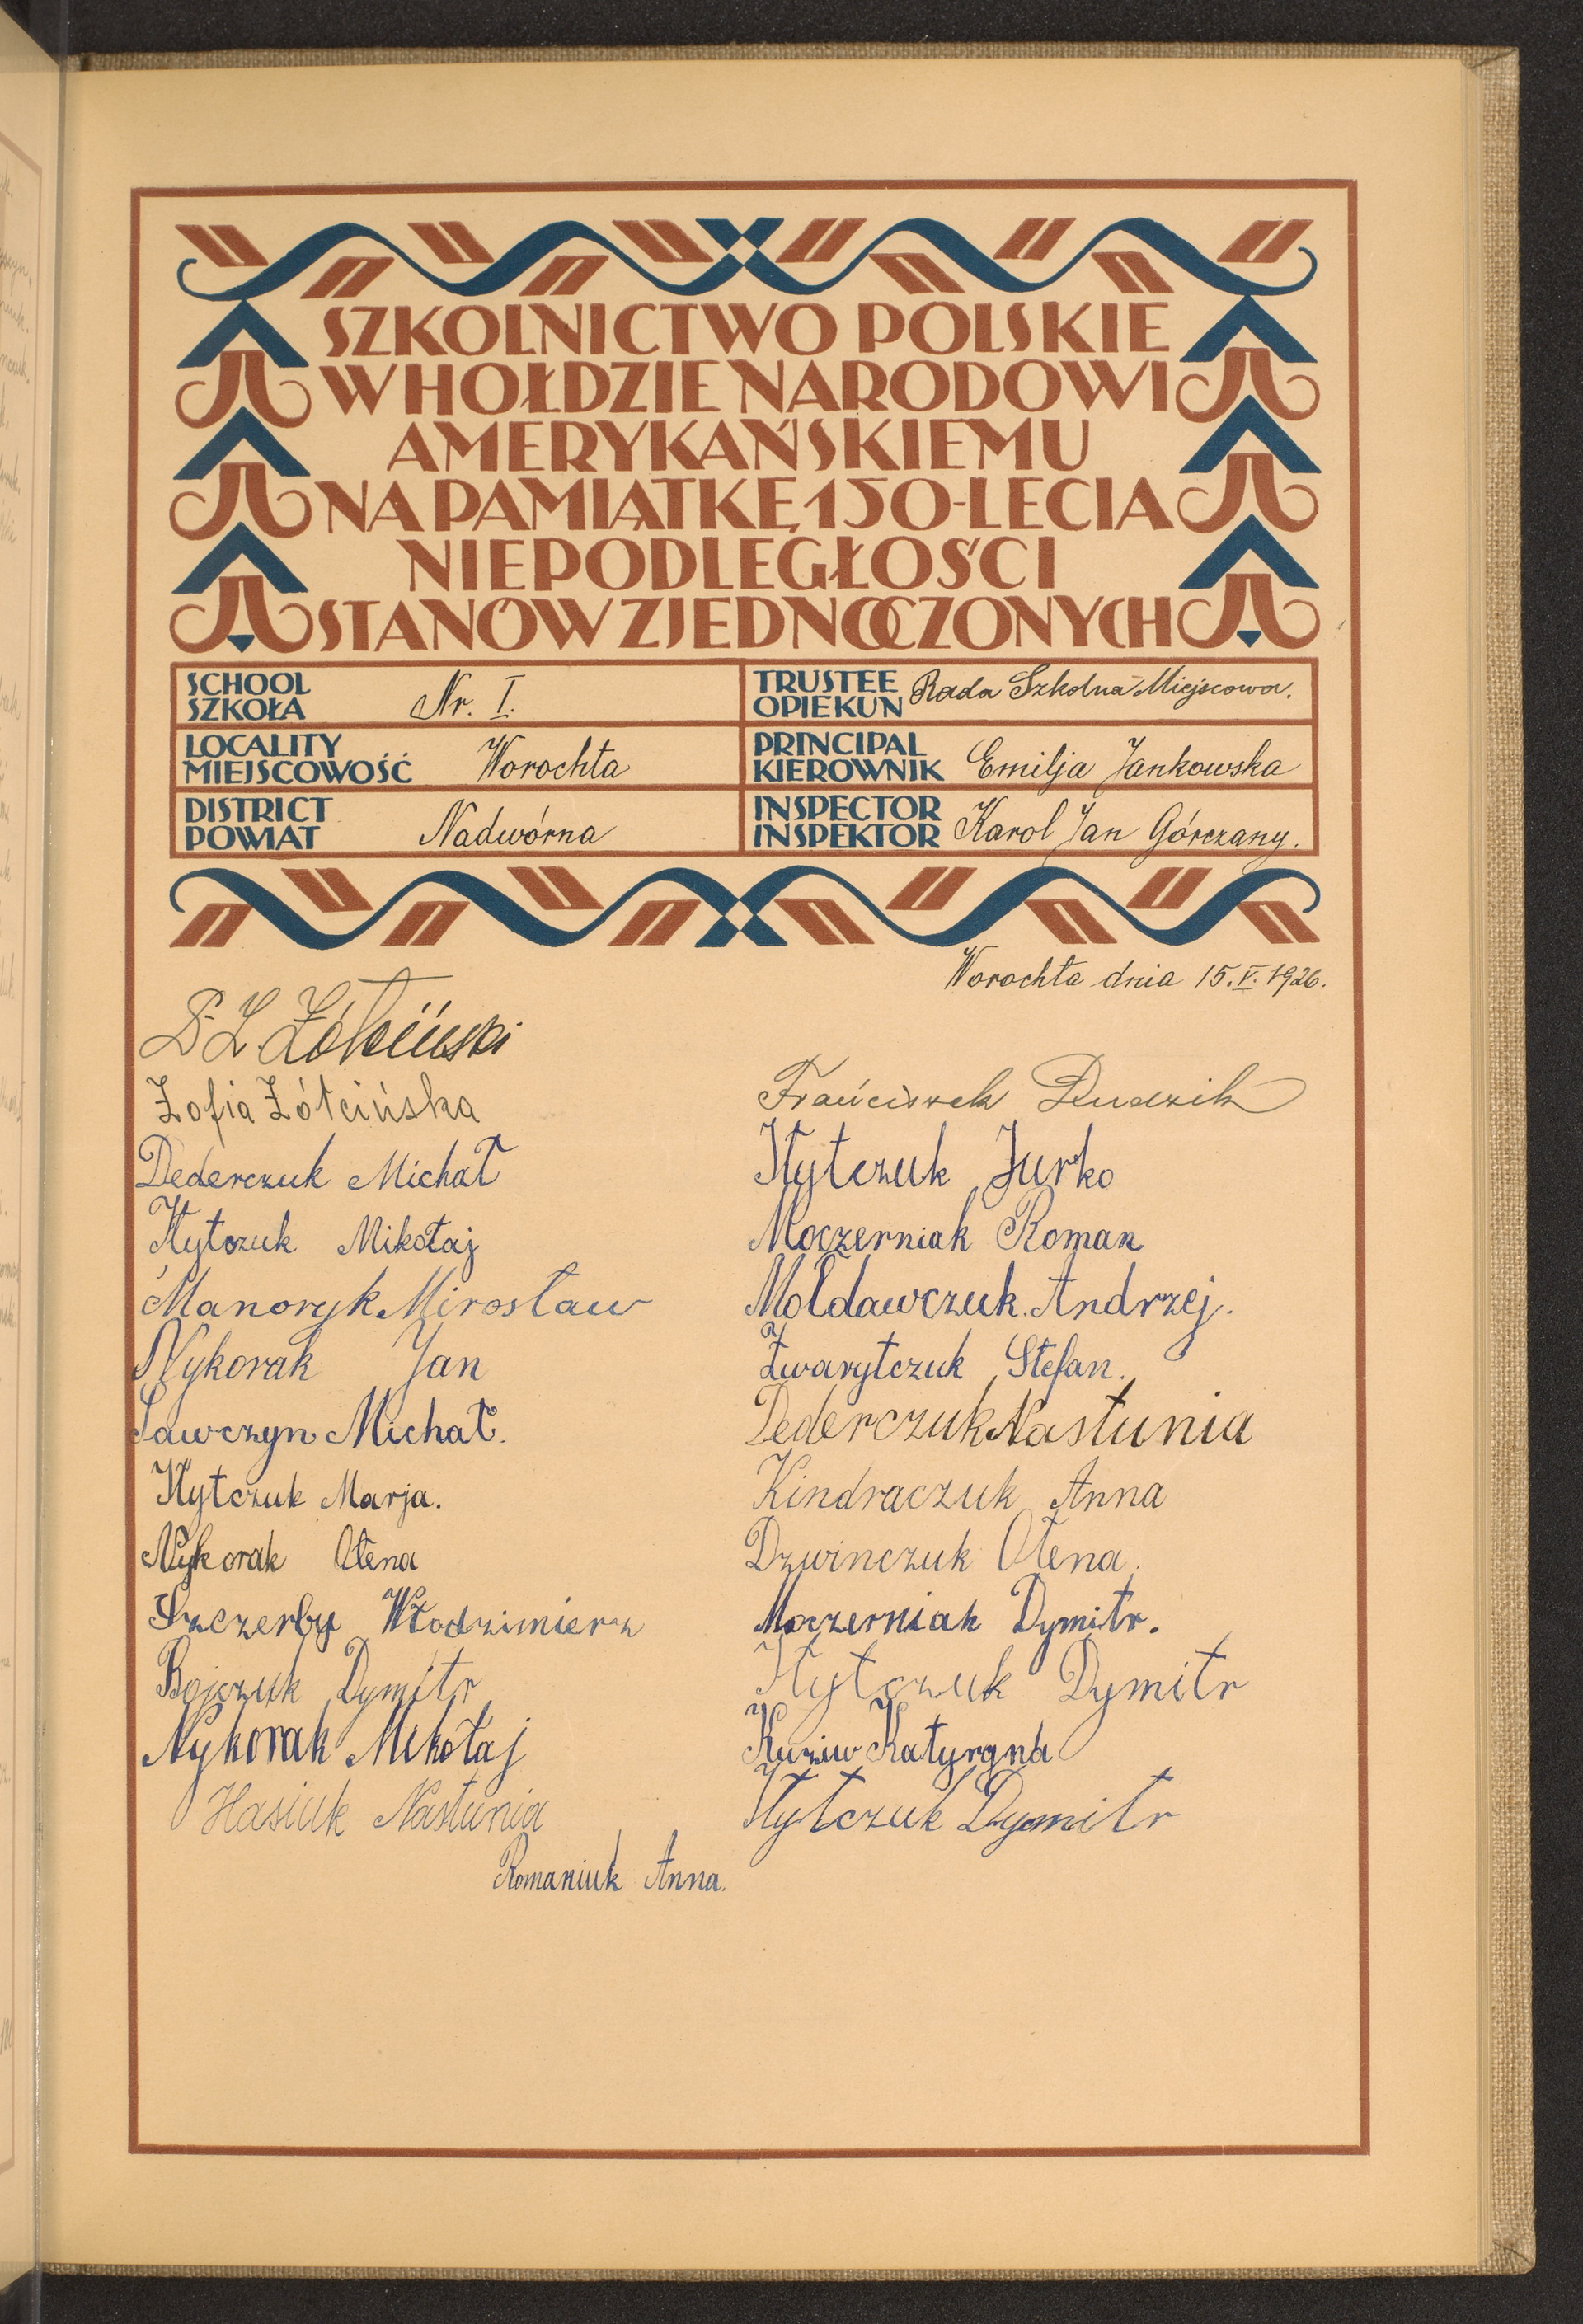 SZKOLNICTWO POLSKIE
W HOŁDZIE NARODOWI
AMERYKAŃSKIEMU
NA PAMIĄTKĘ 150-LECIA
NIEPODLEGŁOŚCI
STANÓW ZJEDNOCZONYCH
SCHOOL
SZKOŁA Nr. I.
TRUSTEE
OPIEKUN Rada Szkolna Miejscowa.
LOCALITY
MIEJSCOWOŚĆ Worochta
PRINCIPAL
KIEROWNIK Emilja Jankowska
DISTRICT
POWIAT Nadwórna
INSPECTOR
INSPEKTOR Karol Jan Górczany.
Worochta dnia 15.V.1926.
Żółciński
Zofia Żółcińska
Dederczuk Michał
Hytczuk Mikołaj
Manoryk Mirosław
Nykorak Jan
Sawczyn Michał.
Hytczuk Marja.
Nykorak Ołena
Szczerby Włodzimierz
Bojczuk Dymitr
Nykorak Mikołaj
Hasiuk Nastunia
Romaniuk Anna.
Franciszek Dudzik
Hytczuk Jurko
Moczerniak Roman
Mołdawczuk Andrzej.
Zwarytczuk Stefan.
Dederczuk Nastunia
Kindraczuk Anna
Dzwinczuk Ołena.
Moczerniak Dymitr.
Hytczuk Dymitr
Kuziw Katyryna
Hytczuk Dymitr